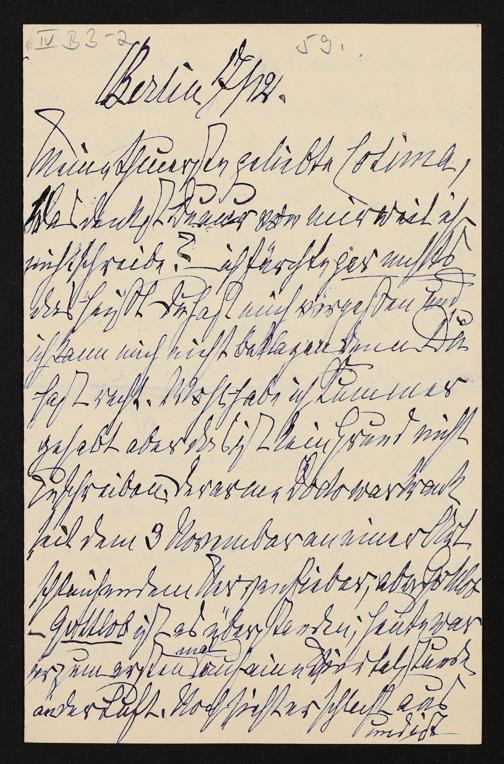 IV B 3-2
59.
Berlin 17/12.
Meine theuerste geliebte Cosima,
Was denkst Du nur von mir weil ich
nicht schreibe? – ich fürchte gar nichts
das heißt Du hast mich vergessen und
ich kann mich nicht beklagen denn Du
hast recht. Wohl habe ich Kummer
gehabt aber das ist kein Grund nicht
zu schreiben. Der arme Dodo war krank
seit dem 3 November an einem
schleichenden Nervenfieber, aber
– Gottlob ist es überstanden; heute war
er zum ersten mal auf eine Viertelstunde
an der Luft. Noch sieht er schlecht aus
und ist